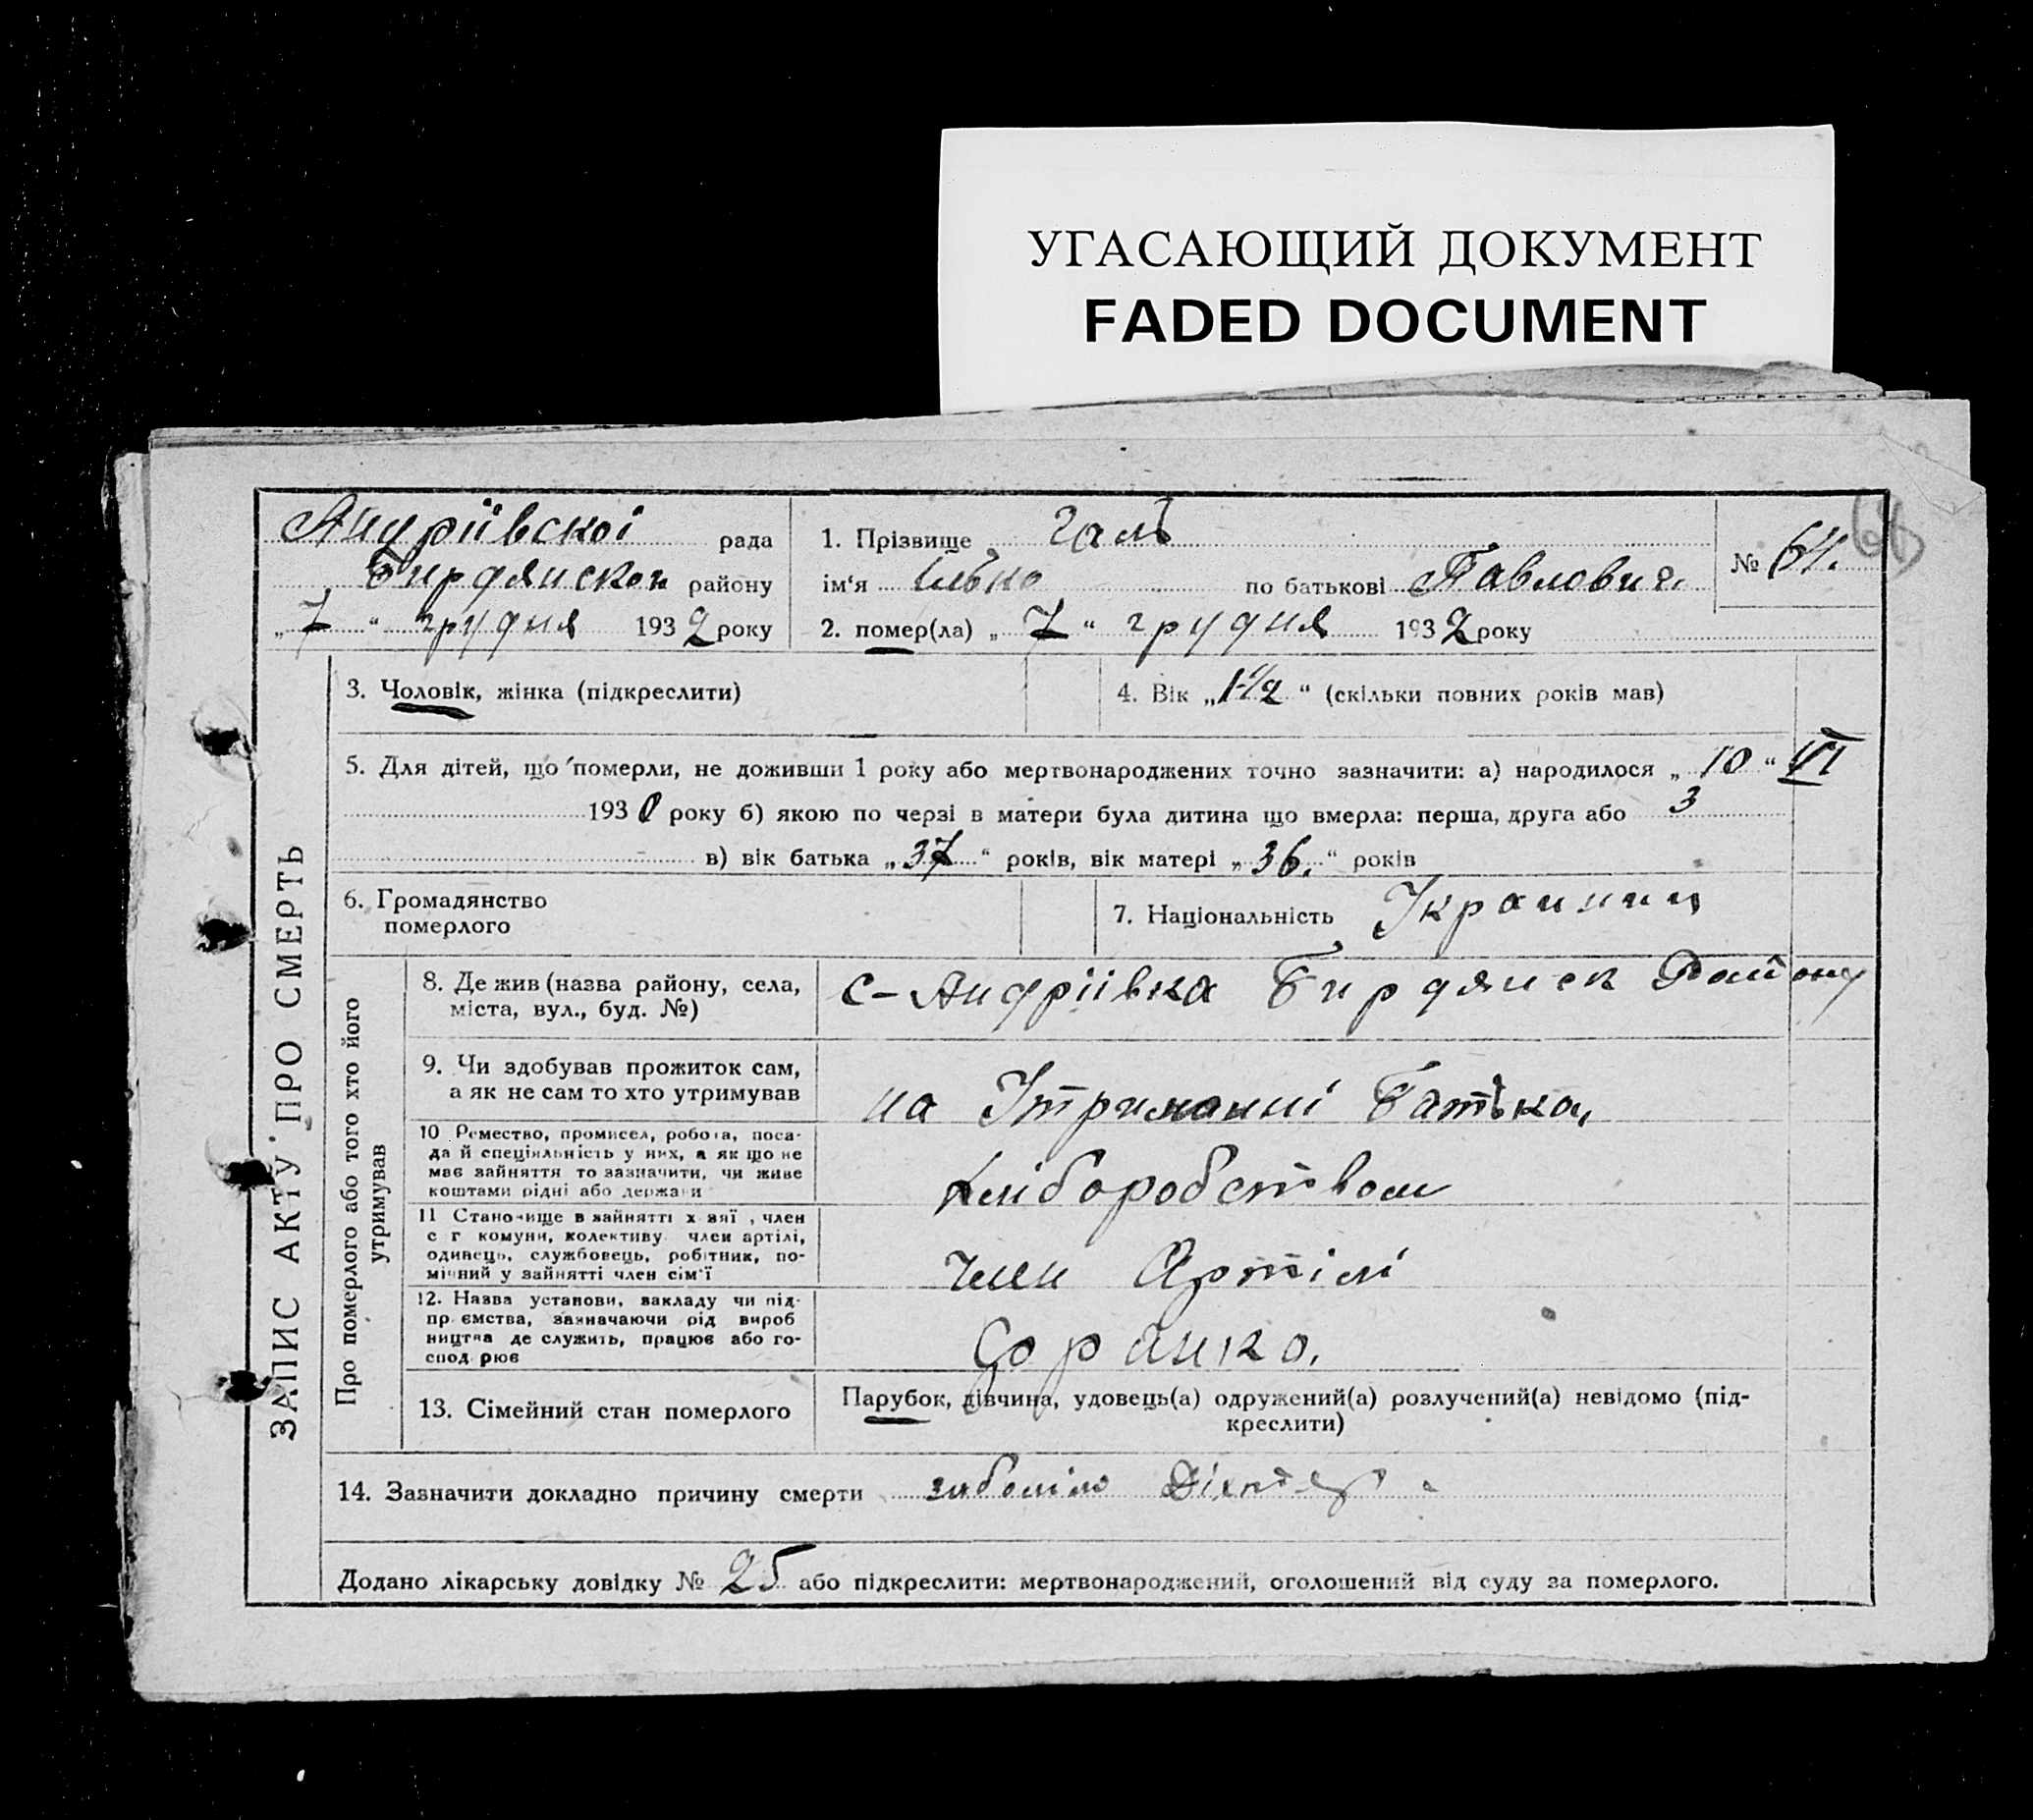 УГАСАЮЩИЙ ДОКУМЕНТ
FADED DOCUMENT
Андріівскоі рада
Бирдянскоі району
„ 7 “ грудня 1932 року
1. Прізвище Галь
ім‘я Ілько по батькові Павлович
№ 64.
2. помер(ла) „ 7 “ грудня 1932 року
ЗАПИС АКТУ ПРО СМЕРТЬ
3. Чоловік, жінка (підкреслити)
4. Вік „ 1 1/2 “ (скільки повних років мав)
5. Для дітей, що померли, не доживши 1 року або мертвонароджених точно зазначити: а) народилося „ 10 “ VI
193 року б) якою по черзі в матери була дитина що вмерла: перша, друга або 3
в) вік батька „ 37 “ років, вік матері „ 36. “ років
6. Громадянство
померлого
7. Національність Украинин
Про померлого або того хто його
утримував
8. Де жив (назва району, села,
міста, вул., буд. №)
с-Андріівка Бирдянск Району
9. Чи здобував прожиток сам,
а як не сам то хто утримував
на Утриманні Батька,
10 Ремество, промисел, робота, поса-
да й спеціяльність у них, а як що не
має зайняття то зазначити, чи живе
коштами рідні або держави
Хліборобством
11 Становище в зайнятті х-зяї , член
с г комуни, колективу член артілі,
одинець, службовець, робітник, по-
мічний у зайнятті член сім‘ї
член Артілі
12. Назва установи, закладу чи під-
пр ємства, зазначаючи рід вироб
ництва де служить, працює або го-
спод рює
13. Сімейний стан померлого
Парубок, дівчина, удовець(а) одружений(а) розлучений(а) невідомо (під-
креслити)
14. Зазначити докладно причину смерти
Додано лікарську довідку № 25 або підкреслити: мертвонароджений, оголошений від суду за померлого.